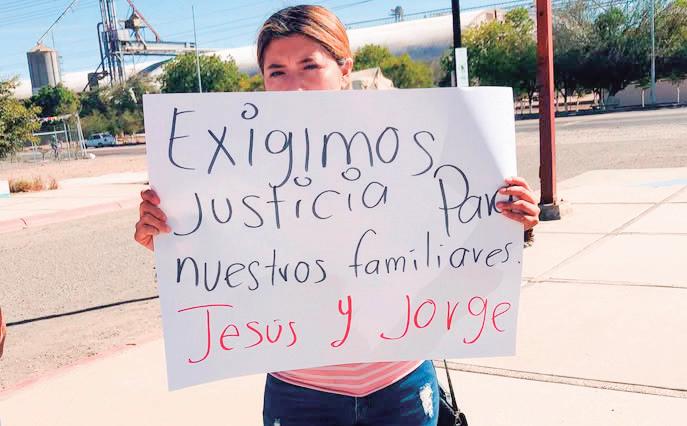 Exigimos
Justicia Para
nuestros familiares.
Jesús y Jorge